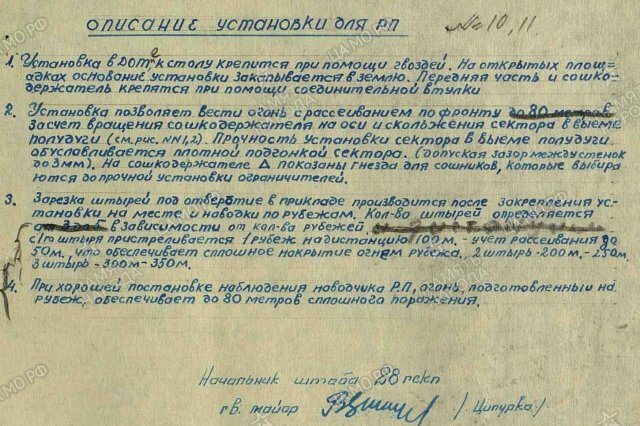 ОПИСАНИЕ УСТАНОВКИ ДЛЯ Р.П № 10, 11
1. Установка в ДОТе к столу крепится при помощи гвоздей. На открытых площ-
адках основание установки закапывается в землю. Передняя часть и сошко-
держатель крепятся при помощи соединительной втулки
2. Установка позволяет вести огонь с рассеиванием по фронту до 80 метров
За счет вращения сошкодержателя на оси и скольжения сектора в выеме
полудуги (см. рис. №1,2). Прочность установки сектора Б выеме полудуги.
обуславливается плотной подгонкой сектора. (допуская зазор между стенок
до 3 мм). На сошкодержателе Д показаны гнезда для сошников, которые выбира
ются до прочной установки ограничителей.
3. Зарезка штырей под отверстие в прикладе производится после закрепления ус-
тановки на месте и наводки по рубежам. Кол-во штырей определяется
в зависимости от кол-ва рубежей.
с 1го штыря пристреливается 1 рубеж на дистанцию 100 м. - учет рассеивания до
50 м. что обеспечивает сплошное накрытие огнем рубежа, 2 штырь - 200 м. - 250 м.
3 штырь - 300 м - 350 м.
4. При хорошей постановке наблюдения наводчика Р.П., огонь, подготовленный на
рубеж, обеспечивает до 80 метров сплошного поражения.
Начальник штаба 28 гскп
гв. майор /Ципурка/
ЦАМО РФ
ПАМЯТЬ